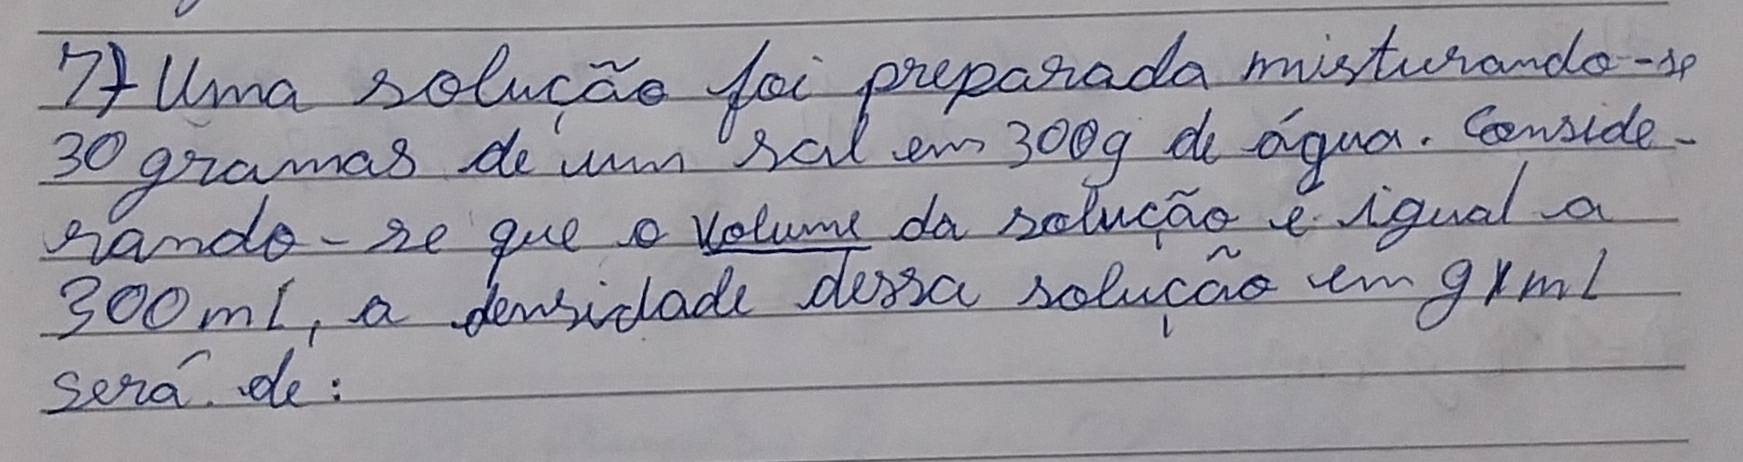 7) Uma solução foi preparada misturando-se
30 gramas de um sal em 300g de água. Conside-
rando-se que o volume da solução é igual a
300ml, a densidade dessa solução em g/ml
será de: